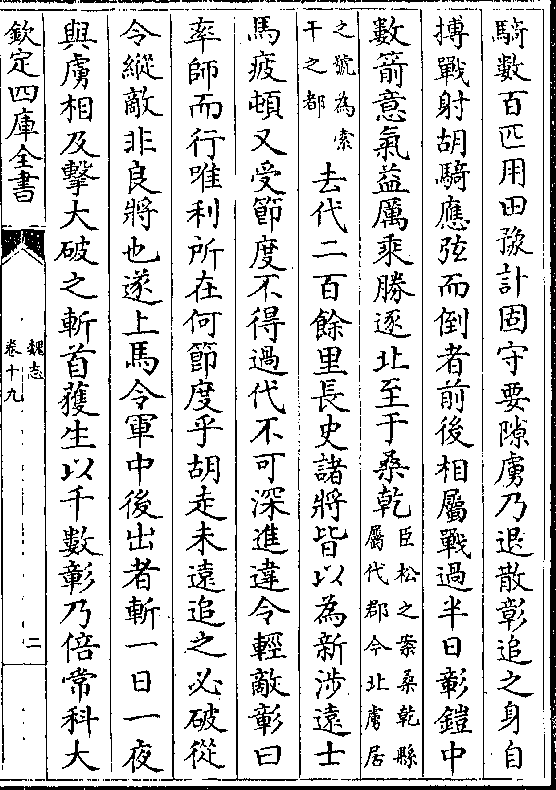 騎數百匹用田豫計固守要隙虜乃退散彰追之身自
搏戰射胡騎應弦而倒者前後相屬戰過半日彰鎧中
數箭意氣益厲乘勝逐北至于桑乾臣松之案桑乾縣屬代郡今北虜居
之號為索干之都去代二百餘里長史諸將皆以為新涉遠士
馬疲頓又受節度不得過代不可深進違令輕敵彰曰
率師而行唯利所在何節度乎胡走未遠追之必破從
令縱敵非良將也遂上馬令軍中後出者斬一日一夜
與虜相及擊大破之斬首獲生以千數彰乃倍常科大
欽定四庫全書
魏志
卷十九
二